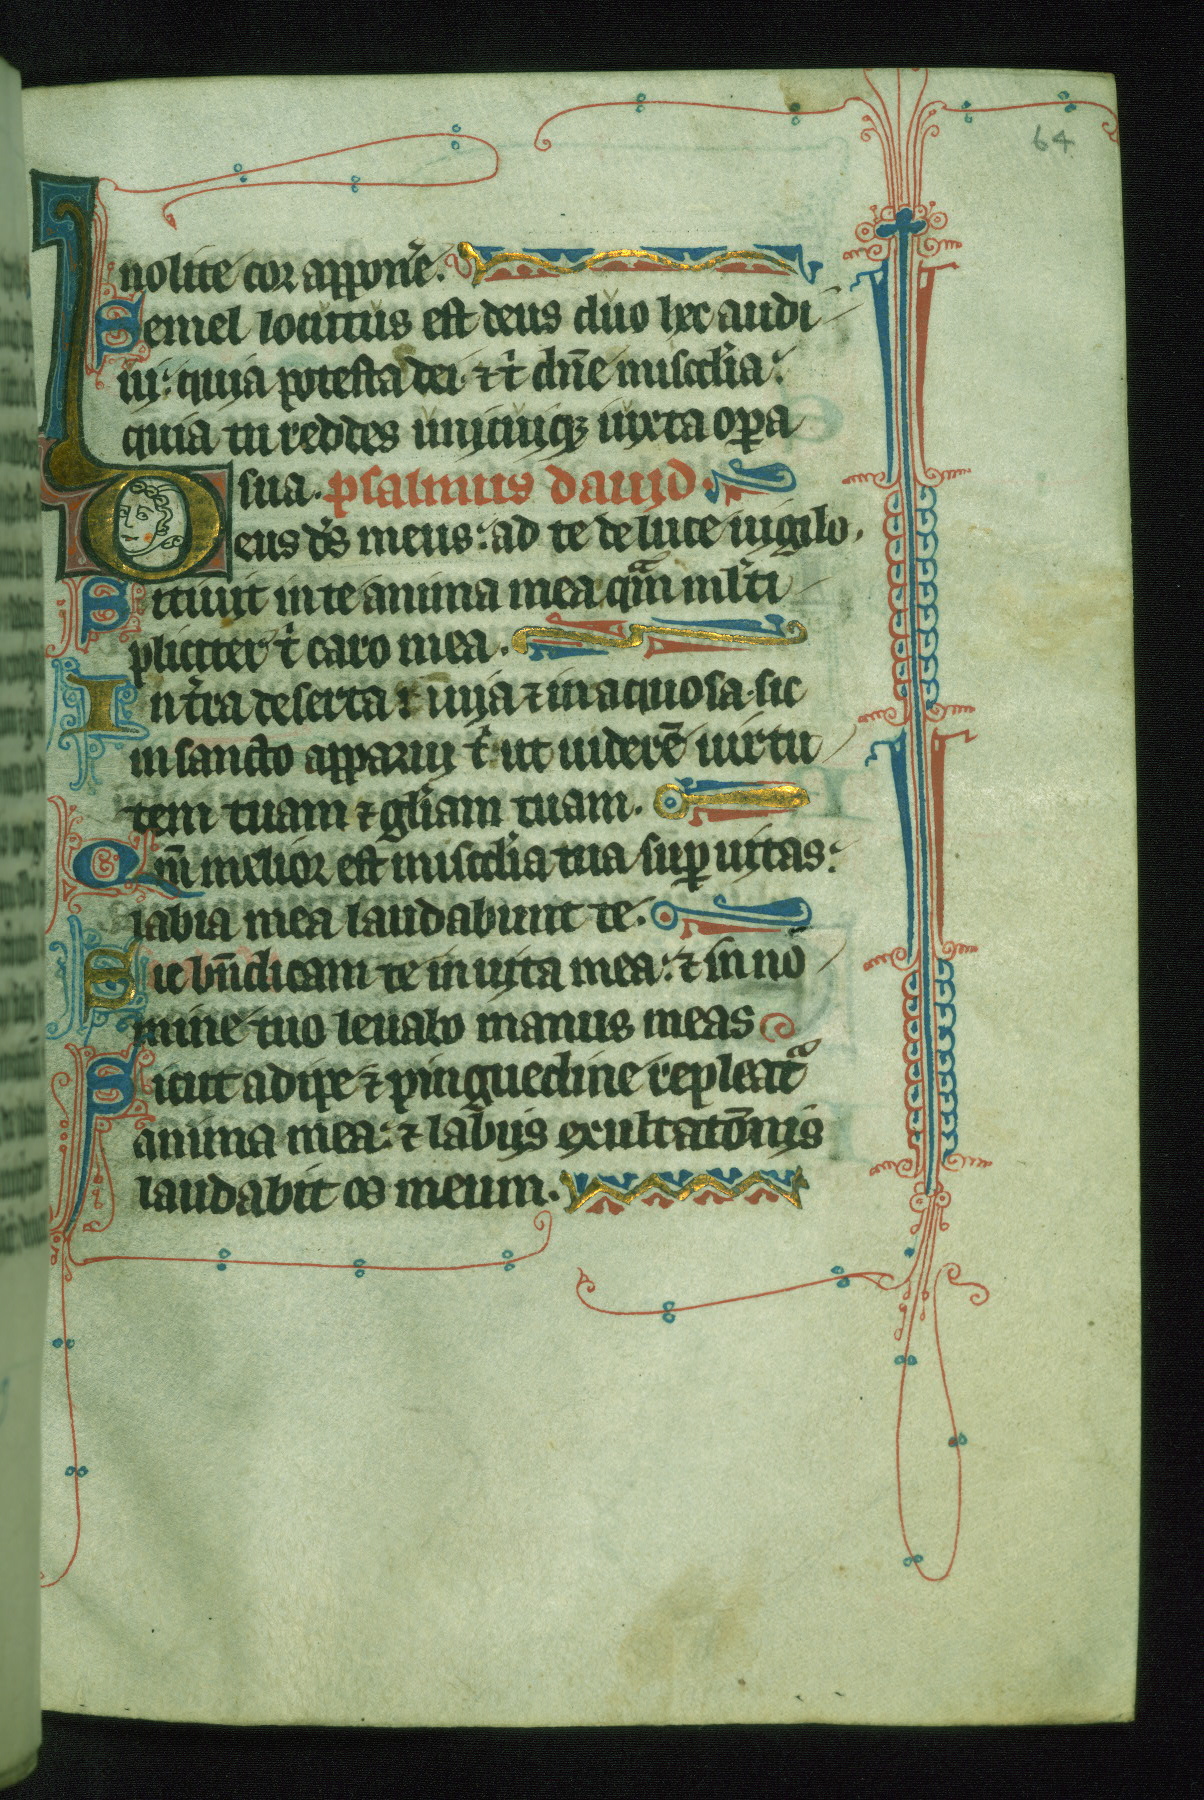 64
nolite cor appon̄e.
Semel locutus est deus duo hec audi
ui: quia potesta dei ⁊ t̄ dn̄e misc̄dia:
quia tu reddes unicuiqꝫ iuxta oꝑa
sua. psalmus dauid.
Deus ds̄ meus: ad te de luce uigilo.
Sitiuit in te anima mea qᵃm ml̄ti
pliciter t̄ caro mea.
In t̄ra deserta ⁊ inuia ⁊ in aquosa. sic
in sancto apparui t̄ ut uiderē uirtu
tem tuam ⁊ gl̄iam tuam.
Qm̄ melior est misc̄dia tua suꝑ uitas:
labia mea laudabunt te.
Sic bn̄dicam te in uita mea: ⁊ in no
mine tuo leuabo manus meas
Sicut adipe ⁊ pinguedine repleatᵃ
anima mea: ⁊ labijs exultatōnis
laudabit os meum.